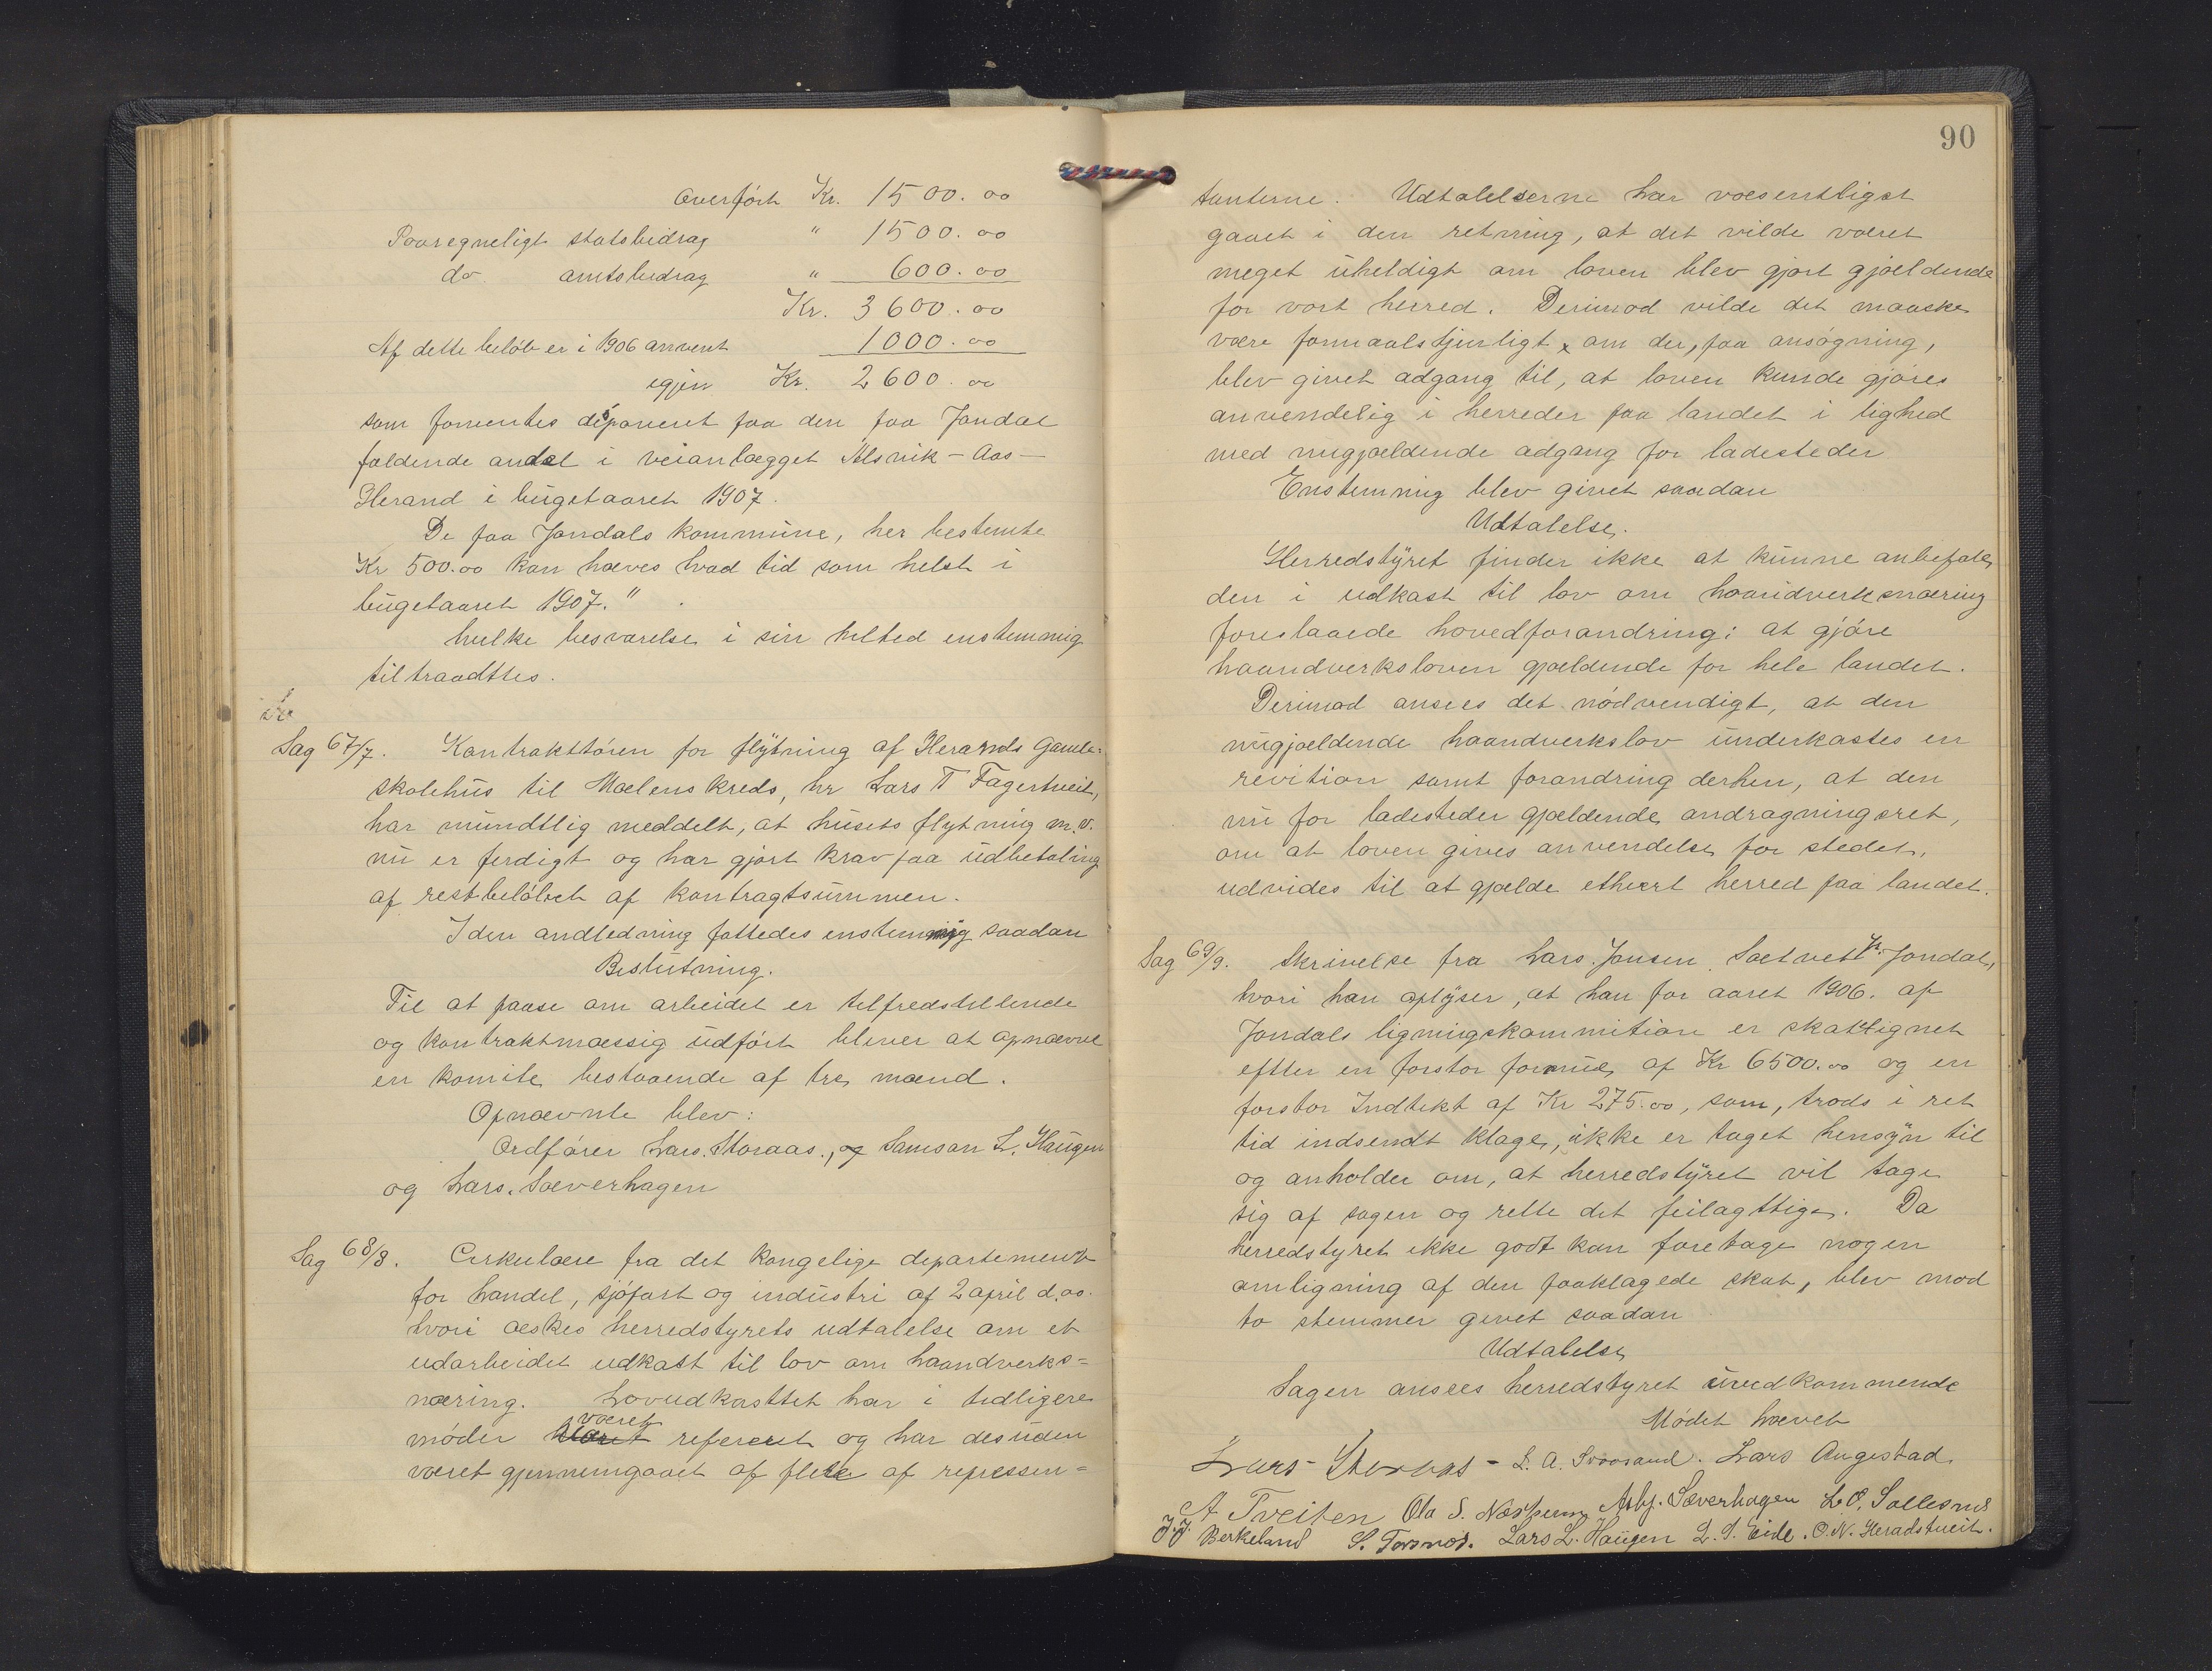 Overført Kr. 1500.00
Paaregneligt statsbidrag " 1500.00
do amtsbidrag " 600.00
Kr. 3600.00
Af dette beløb er i 1906 anvent 1000.00
igjen Kr. 2600.00
som forventes disponeret paa den paa Jondal
faldende andel i veianlægget Alsvik - Aas -
Herand i bugetaaret 1907.
De paa Jondals kommune, her bestemte
Kr 500.00 kan hæves hvad tid som helst i
bugetaaret 1907."
hvilke besvarelse i sin helhed enstemmig
tiltraadttes.
Sag 67/7. Kontrakttøren for flytning af Herands Gamle=
skolehus til Mælens kreds, hr Lars T Fagertveit,
har mundtlig meddelt, at husets flytning m.v.
nu er ferdigt og har gjort krav paa udbetaling
af restbeløbet af kontragtsummen.
I den andledning fattedes enstemmig saadan
Beslutning.
Til at paase om arbeidet er tilfredstillende
og kontraktmæssig udført bliver at opnævne
en komite bestaaende af tre mænd.
Opnævnte blev:
Ordfører Lars. Storaas., og Samson L. Haugen
og Lars. Sæverhagen
Sag 68/8. Cirkulære fra det kongelige departement
for handel, sjøfart og industri af 2 april d.aa.
hvori æskes herredstyrets udtalelse om et
udarbeidet udkast til lov om haandverks=
næring. Lovudkasttet har i tidligere
møder været refereret og har desuden
været gjennemgaaet af flere af repressen=
90
tanterne. Udtalelserne har væsentligst
gaaet i den retning, at det vilde været
meget uheldigt om loven blev gjort gjældende
for vort herred. Derimod vilde det maaske
være formaalstjenligt, om der, paa ansøgning,
blev givet adgang til, at loven kunde gjøres
anvendelig i herreder paa landet i lighed
med nugjældende adgang for ladesteder
Enstemmig blev givet saadan
Udtalelse.
Herredstyret finder ikke at kunne anbefale
den i udkast til lov om haandverksnæring
foreslaaede hovedforandring: at gjøre
haandverksloven gjældende for hele landet.
Derimod ansees det nødvendigt, at den
nugjældende haandverkslov underkastes en
revition samt forandring derhen, at den
nu for ladesteder gjældende andragningsret,
om at loven gives anvendelse for stedet,
udvides til at gjælde ethvert herred paa landet.
Sag 69/9. Skrivelse fra Lars. Jonsen Sætvett Yt. Jondal,
hvori han oplyser, at han for aaret 1906. af
Jondals ligningskommition er skattlignet
efter en forstor formue af Kr 6500.00 og en
forstor Indtekt af Kr 275.00, som, trods i ret
tid indsendt klage, ikke er taget hensyn til
og anholder om, at herredstyret vil tage
sig af sagen og rette det feilagttige. Da
herredstyret ikke godt kan foretage nogen
omligning af den paaklagede skat, blev mod
to stemmer givet saadan
Udtalelse
Sagen ansees herredstyret uvedkommende
Mødet hævet
Lars Storaas - L. A. Svaasand. Lars Augestad.
A Tveiten Ola S. Næsheim Asbj. Sæverhagen L. O. Sollesnes
J. J. Berkeland S. Torsnes. Lars L. Haugen L. S. Eide. O. N. Heradstveit.